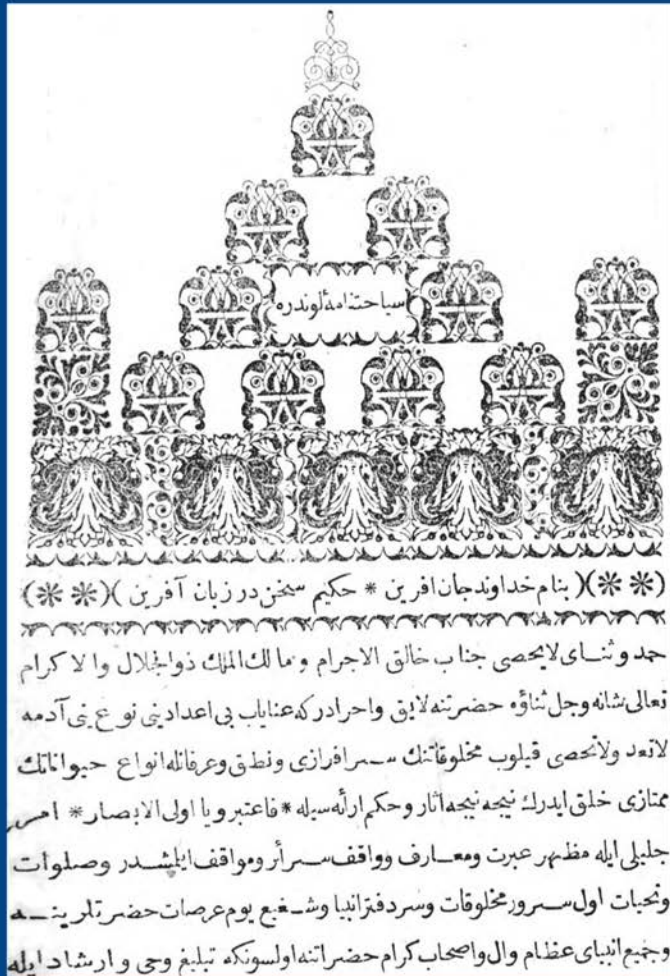 سیاحتنامهٔ لوندره
(**)( بنام خداوند جان افرین * حکیم سخن در زبان آفرین )(**)
حمد و ثنـای لایحصی جناب خالق الاجرام و مالك الملك ذوالجلال والاکرام
تعالی شانه وجل ثناؤه حضرتنه لایق واحرادرکه عنایات بی اعدادینی نوع بنی آدمه
لاتعد ولاتحصی قیلوب مخلوقاتنك سـرافرازی ونطق وعرفانله انواع حیواناتك
ممتازی خلق ایدرك نیجه نیجه آثار وحکم ارائه سیله * فاعتبروا یا اولی الابصار * امر
جلیلی ایله مظهر عبرت ومعـارف وواقف سـرأر ومواقف ایلشـدر وصلوات
وتحیات اول سـرور مخلوقات وسردفتر انبیا وشـفیع یوم عرصات حضرتلرینـه
وجمیع انبیای عظام وال واصحاب کرام حضراتنه اولسونکه تبلیغ وحی وارشاد ایله